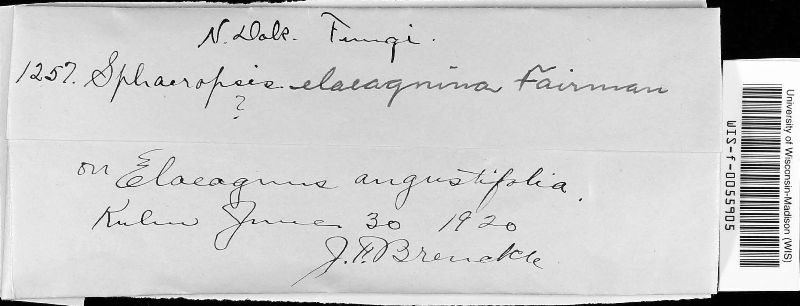 N. Dak. Fungi.
1257. Sphaeropsis elaeagnina Fairman
?
on Elaeagnus angustifolia.
Kulm June 30 1920
J. F. Brenckle
University of Wisconsin-Madison (WIS)
WIS-f-0055905